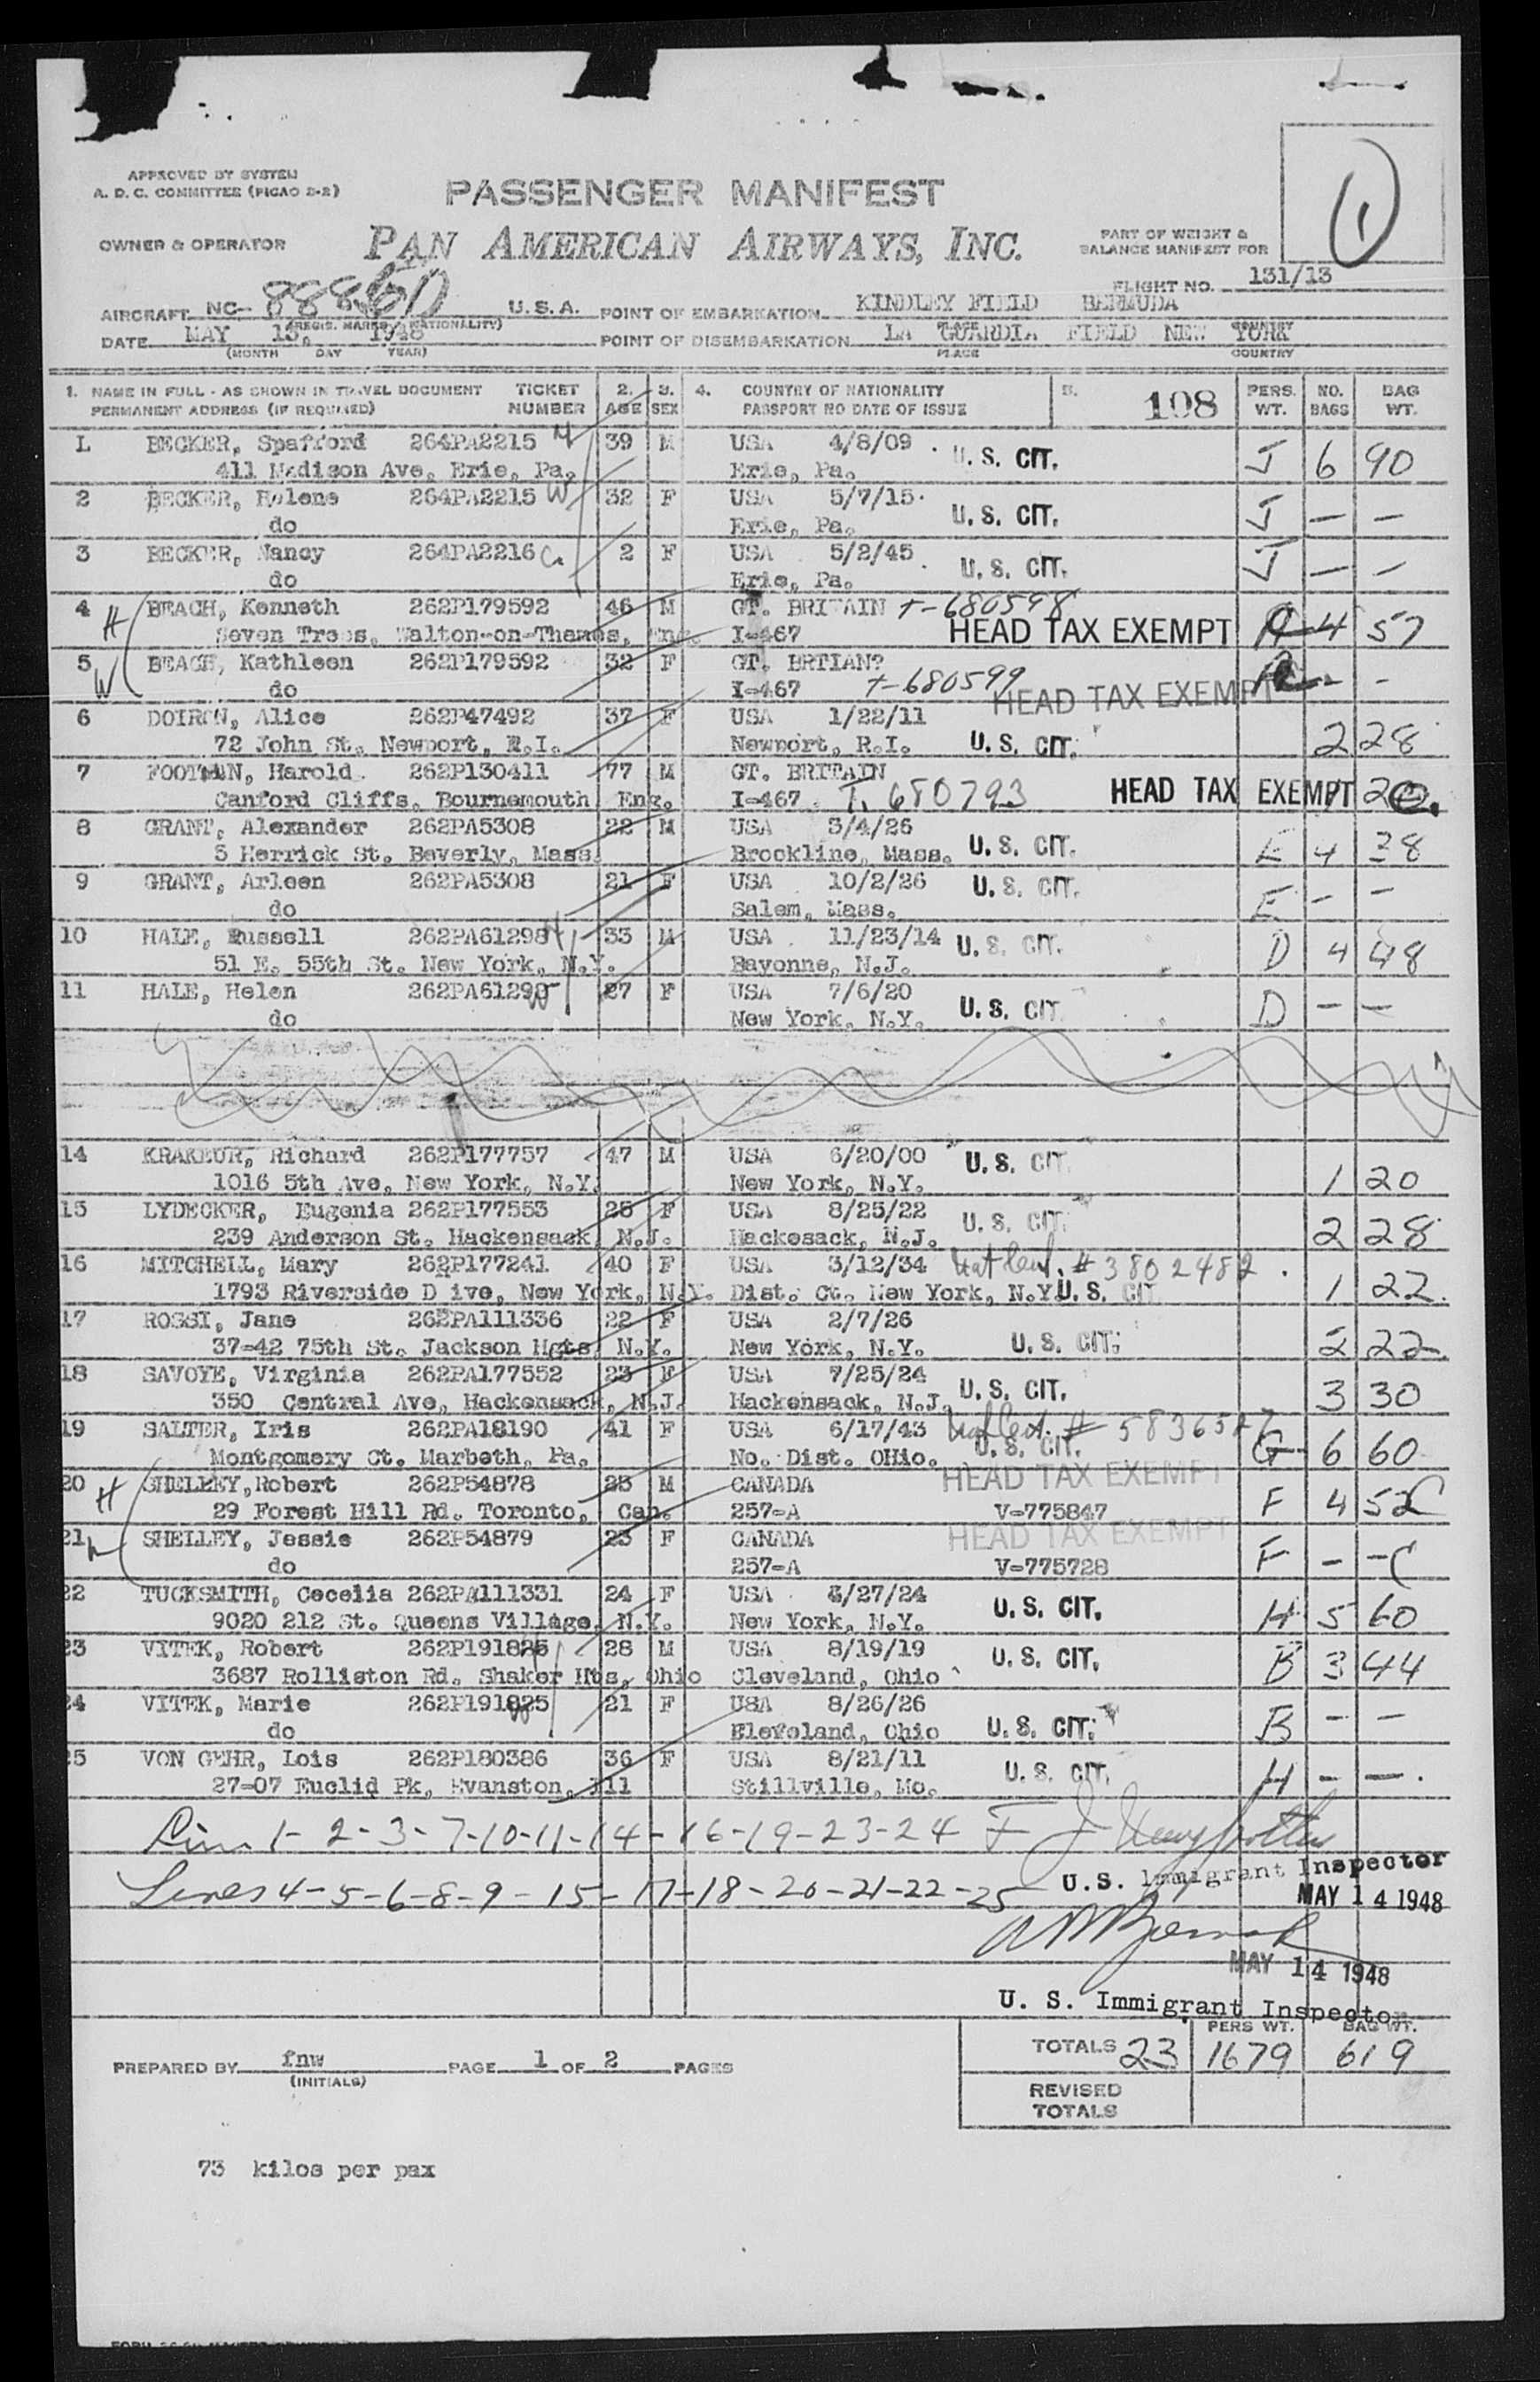 APPROVED BY SYSTEM
A. D. C. COMMITTEE (PICAO 2-2)
PASSENGER MANIFEST
1
OWNER & OPERATOR PAN AMERICAN AIRWAYS, INC.
PART OF WEIGHT &
BALANCE MANIFEST FOR
FLIGHT NO. 131/13
AIRCRAFT NC- U.S.A. POINT OF EMBARKATION KINDLEY FIELD BERMUDA
(REGIS. MARKS NATIONALITY) PLACE COUNTRY
DATE MAY 13, 1948 POINT OF DISEMBARKATION LA GUARDIA FIELD NEW YORK
(MONTH DAY YEAR) PLACE COUNTRY
1. NAME IN FULL - AS SHOWN IN TRAVEL DOCUMENT TICKET 2. 3. 4. COUNTRY OF NATIONALITY 5. 108 PERS. NO. BAG
PERMANENT ADDRESS (IF REQUIRED) NUMBER AGE SEX PASSPORT NO DATE OF ISSUE WT. BAGS WT.
1 BECKER, Spafford 264PA2215 H 39 M USA 4/8/09 U.S. CIT. J 6 90
411 Madison Ave, Erie, Pa. Erie, Pa.
2 BECKER, Helene 264PA2215 W 32 F USA 5/7/15 U.S. CIT. J — —
do Erie, Pa.
3 BECKER, Nancy 264PA2216 C. 2 F USA 5/2/45 U.S. CIT. J — —
do Erie, Pa.
4 H BEACH, Kenneth 262P179592 46 M GT. BRITAIN T-680598
Seven Trees, Walton-on-Thames, Eng. I-467 HEAD TAX EXEMPT A 4 57
5 W BEACH, Kathleen 262P179592 32 F GT. BRTIAN?
do I-467 T-680599 HEAD TAX EXEMPT A - -
6 DOIRON, Alice 262P47492 37 F USA 1/22/11
72 John St. Newport, R.I. Newport, R.I. U.S. CIT. 2 28
7 FOOTMAN, Harold 262P130411 77 M GT. BRITAIN
Canford Cliffs, Bournemouth Eng. I-467 T. 680793 HEAD TAX EXEMPT 1 20
8 GRANT, Alexander 262PA5308 22 M USA 3/4/26
5 Herrick St. Beverly, Mass. Brookline, Mass. U.S. CIT. E 4 38
9 GRANT, Arleen 262PA5308 21 F USA 10/2/26 U.S. CIT. E - -
do Salem, Mass.
10 HALE, Russell 262PA61298 H 33 M USA 11/23/14 U.S. CIT. D 4 48
51 E. 55th St. New York, N.Y. Bayonne, N.J.
11 HALE, Helen 262PA61299 W 27 F USA 7/6/20 U.S. CIT. D — —
do New York, N.Y.
14 KRAKEUR, Richard 262P177757 47 M USA 6/20/00 U.S. CIT.
1016 5th Ave, New York, N.Y. New York, N.Y. 1 20
15 LYDECKER, Eugenia 262P177553 25 F USA 8/25/22 U.S. CIT.
239 Anderson St. Hackensack, N.J. Hackosack, N.J. 2 28
16 MITCHELL, Mary 262P177241 40 F USA 3/12/34 # 3802482
1793 Riverside D ive, New York, N.Y. Dist. Ct. New York, N.Y. U.S. CIT. 1 22
17 ROSSI, Jane 262PA111336 22 F USA 2/7/26
37-42 75th St. Jackson Hgts, N.Y. New York, N.Y. U.S. CIT. 2 22
18 SAVOYE, Virginia 262PA177552 23 F USA 7/25/24
350 Central Ave, Hackensack, N.J. Hackensack, N.J. U.S. CIT. 3 30
19 SALTER, Iris 262PA18190 41 F USA 6/17/43
Montgomery Ct. Marbeth, Pa. No. Dist. OHio. U.S. CIT. G 6 60
20 H SHELLEY, Robert 262P54878 25 M CANADA HEAD TAX EXEMPT
29 Forest Hill Rd. Toronto, Can. 257-A V-775847 F 4 52
21 W SHELLEY, Jessie 262P54879 23 F CANADA HEAD TAX EXEMPT
do 257-A V-775728 F - -
22 TUCKSMITH, Cecelia 262PA111331 24 F USA 3/27/24
9020 212 St. Queens Village, N.Y. New York, N.Y. U.S. CIT. H 5 60
23 VITEK, Robert 262P191825 28 M USA 8/19/19
3687 Rolliston Rd. Shaker Hts, Ohio Cleveland, Ohio U.S. CIT. B 3 44
24 VITEK, Marie 262P191825 W 21 F USA 8/26/26
do Eleveland, Ohio U.S. CIT. B — —
25 VON GEHR, Lois 262P180386 36 F USA 8/21/11
27-07 Euclid Pk, Evanston, Ill Stillville, Mo. U.S. CIT. H - — .
1- 2-3-7-10-11-14-16-19-23-24
U.S. Immigrant Inspector
Lines 4-5-6-8-9-15-17-18-20-21-22-25
MAY 14 1948
MAY 14 1948
U. S. Immigrant Inspector
PERS WT. BAG WT.
TOTALS 23 1679 619
PREPARED BY fnw PAGE 1 OF 2 PAGES
(INITIALS)
REVISED
TOTALS
73 kilos per pax